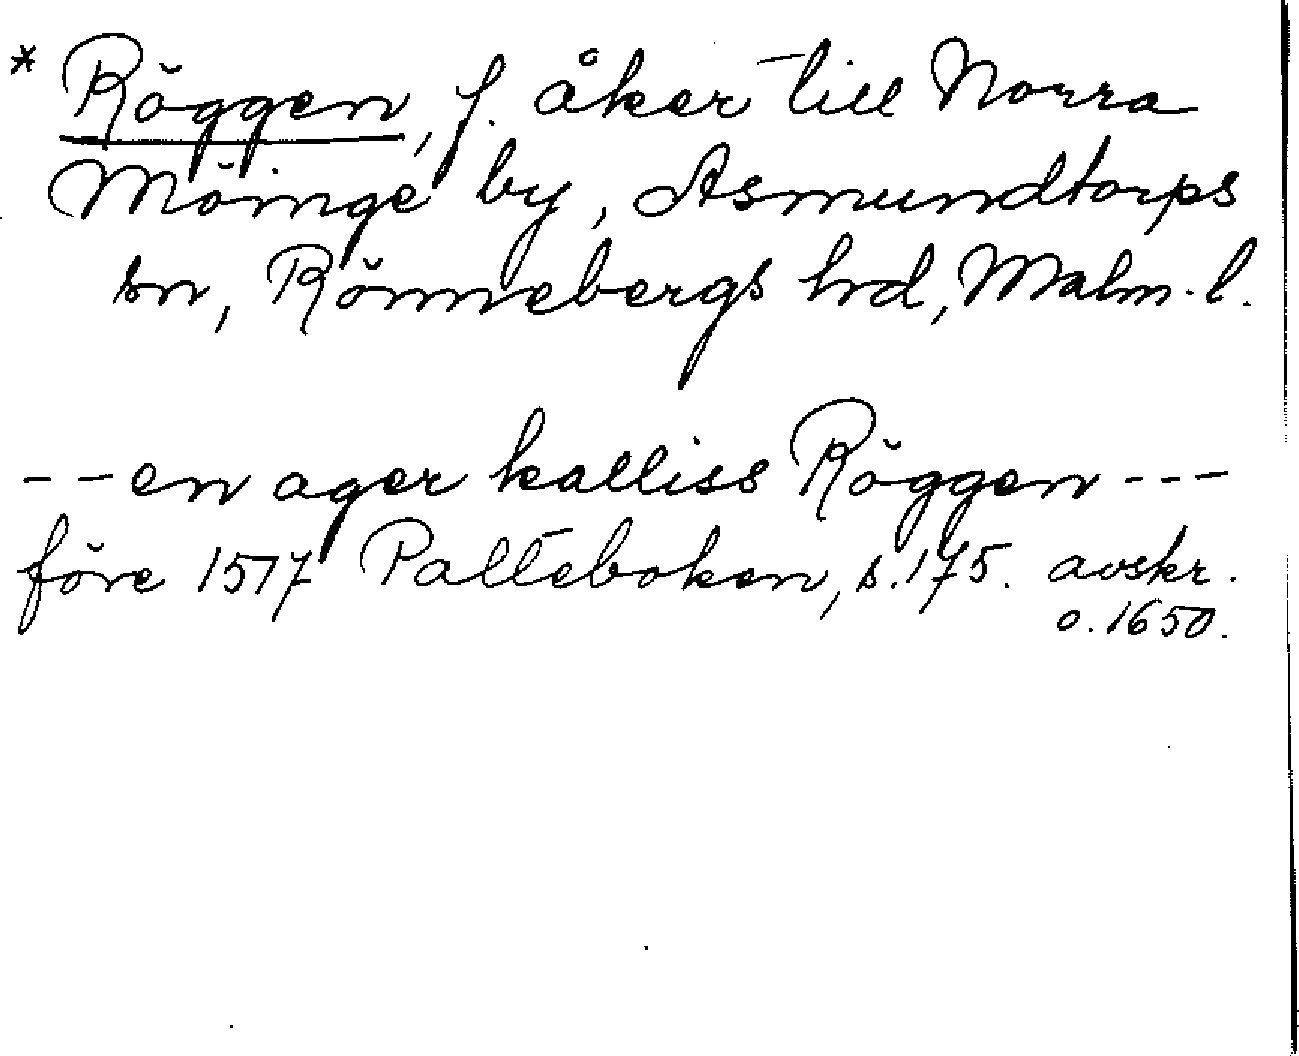 * Röggen, f. åker till Norra
Möinge by, Asmundtorps
sn, Rönnebergs hd, Malm. l.
-- en ager kalliss Röggen ---
före 1517 Palteboken, s. 175. avskr.
o. 1650.